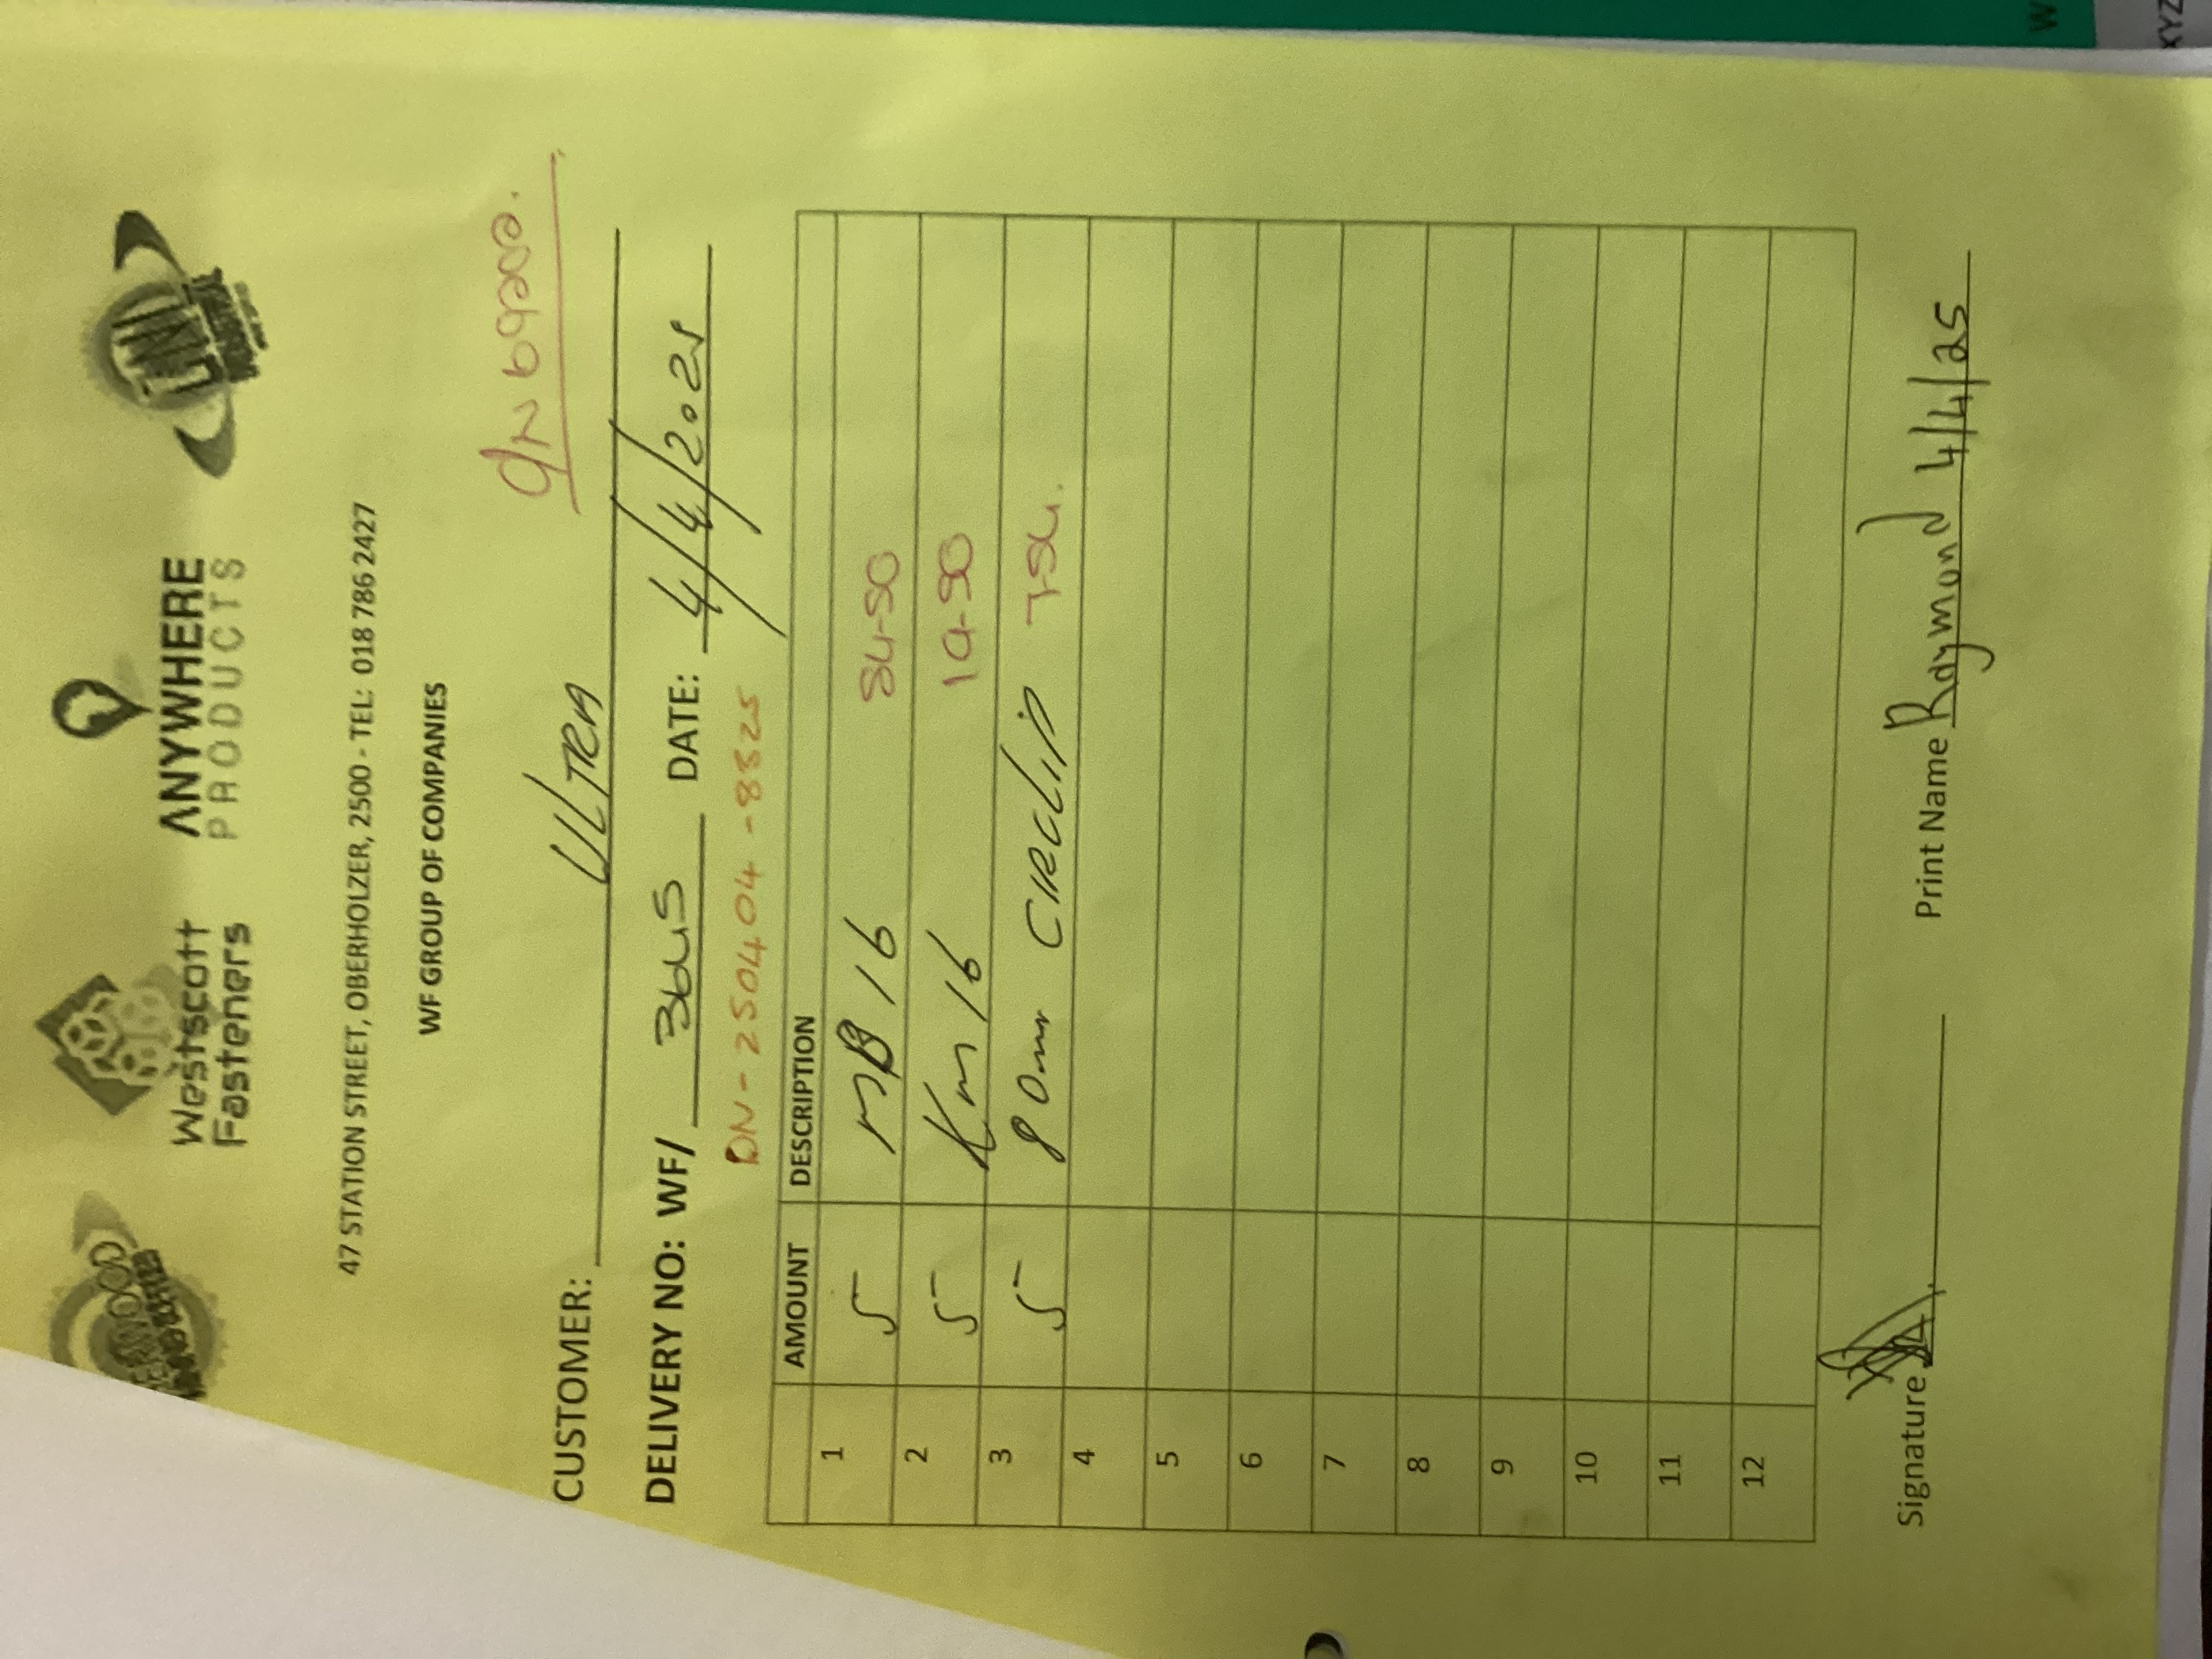 Westscott
Fasteners
ANYWHERE
PRODUCTS
47 STATION STREET, OBERHOLZER, 2500 - TEL: 018 786 2427
WF GROUP OF COMPANIES
CUSTOMER: ULTRA
DELIVERY NO: WF/ 3645 DATE: 4/4/2025
DN-250404-8325
AMOUNT DESCRIPTION
1 5 MB 16 84-50
2 5 Km 16
3 5 80mm CIRCLIP 7-54.
4
5
6
7
8
9
10
11
12
Signature
Print Name Raymond 4/4/25
XYZ